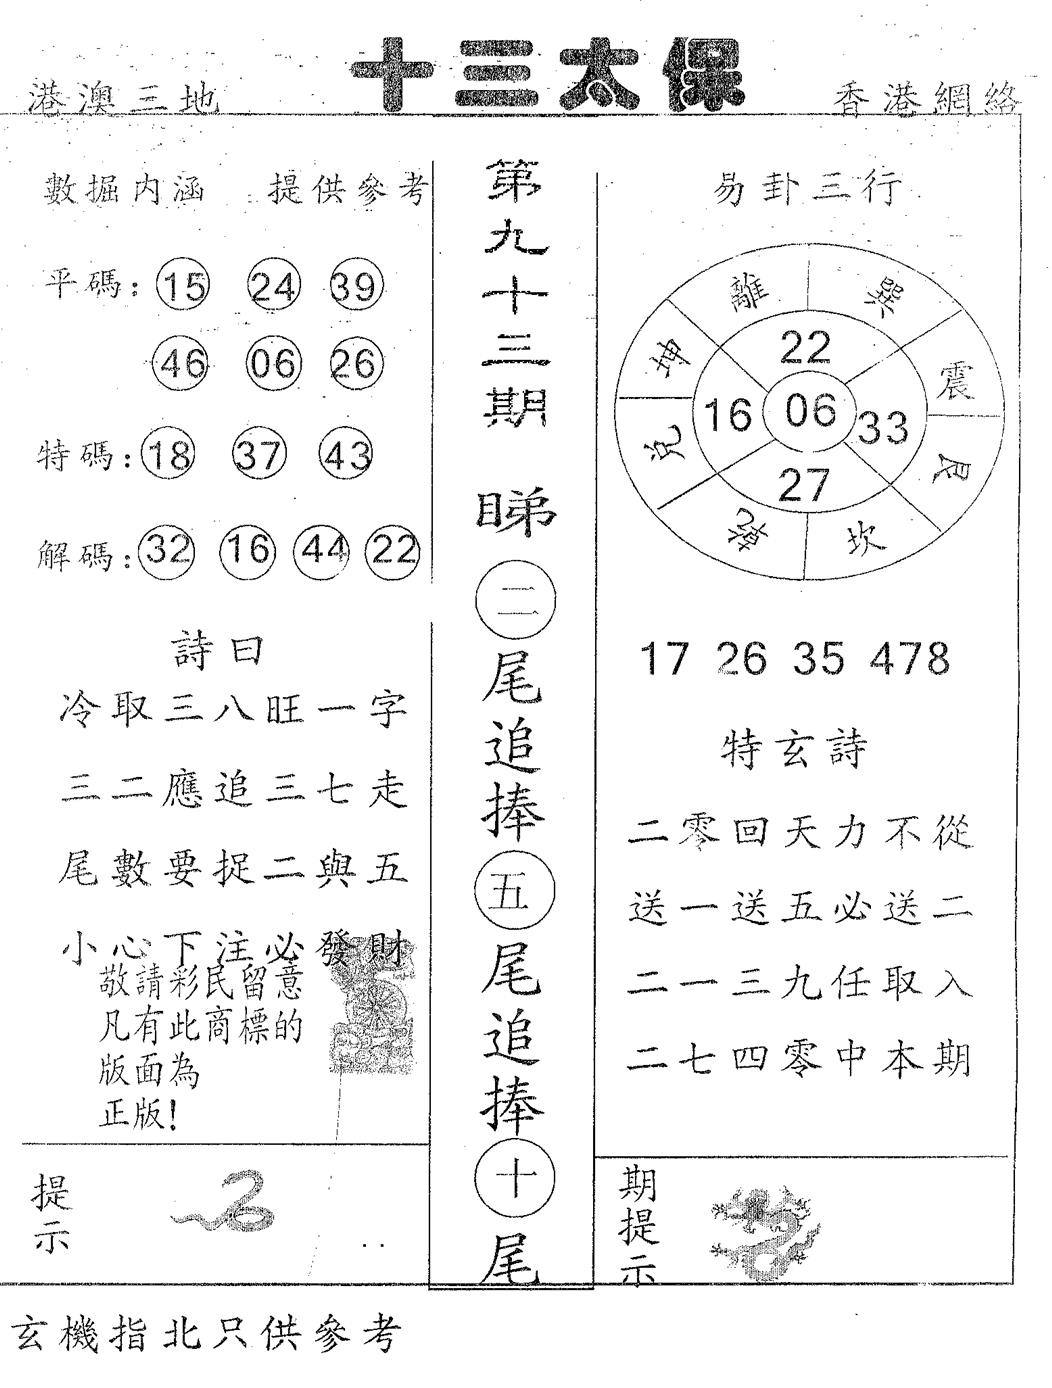 十三太保
港澳三地
香港網絡
數掘内涵 提供參考
平碼：15 24 39
46 06 26
特碼：18 37 43
解碼：32 16 44 22
詩曰
冷取三八旺一字
三二應追三七走
尾數要捉二與五
小心下注必發財
敬請彩民留意
凡有此商標的
版面為
正版！
提示
第九十三期
睇
二
尾追捧
五
尾追捧
十
尾
易卦三行
離 巽
坤 震
兌 艮
乾 坎
22
16 06 33
27
17 26 35 478
特玄詩
二零回天力不從
送一送五必送二
二一三九任取入
二七四零中本期
期提示
玄機指北只供參考